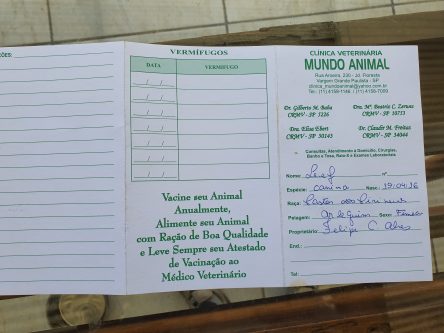 ÕES:
VERMÍFUGOS
DATA VERMÍFUGO
Vacine seu Animal
Anualmente,
Alimente seu Animal
com Ração de Boa Qualidade
e Leve Sempre seu Atestado
de Vacinação ao
Médico Veterinário
CLÍNICA VETERINÁRIA
MUNDO ANIMAL
Rua Aroeira, 230 - Jd. Floresta
Vargem Grande Paulista - SP
clinica_mundoanimal@yahoo.com.br
Dr. Gilberto M. Balia Dra. Mª. Beatriz C.
CRMV - SP 5226 CRMV - SP 10753
Dra. Elisa Ebert Dr. Claudir M. Freitas
CRMV - SP 30145 CRMV - SP 34044
Consultas, Atendimento à Domicílio, Cirurgias,
Banho e Tosa, Raio-X e Exames Laboratoriais
Nome:
Espécie: canina Nasc.: 19.04.16
Raça: Pastor dos Pirineus
Pelagem: Sexo: Femea
Proprietário: Felipe C. Alves
End.:
Tel: